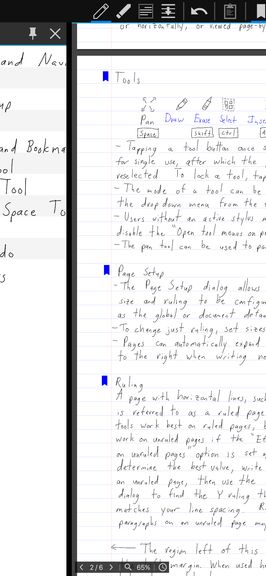 or horizontally, or viewed page-by
and Navi
up
and Bookma
ool
Tool
Space To
do
s
Tools
Pan Draw Erase Select Inse
Space Shift Ctrl
- Tapping a tool button once s
for single use, after which the
reselected To lock a tool, tap
- The mode of a tool can be
the drop down menu from the
- Users without an active stylus m
disable the "Open tool menus on p
- The pen tool can be used to pa
Page Setup
- The Page Setup dialog allows
size and ruling to be configur
as the global or document defau
- To change just ruling, set sizes
- Pages can automatically expand
to the right when writing ne
Ruling
A page with horizontal lines, such
is referred to as a ruled page
tools work best on ruled pages, b
work on unruled pages if the "Er
on unruled pages" option is set
determine the best value, write
on unruled page, then use the
dialog to find the Y ruling th
matches your line spacing. R
paragraphs on an unruled page may
← The region left of this
margin. When used
2/6
65%